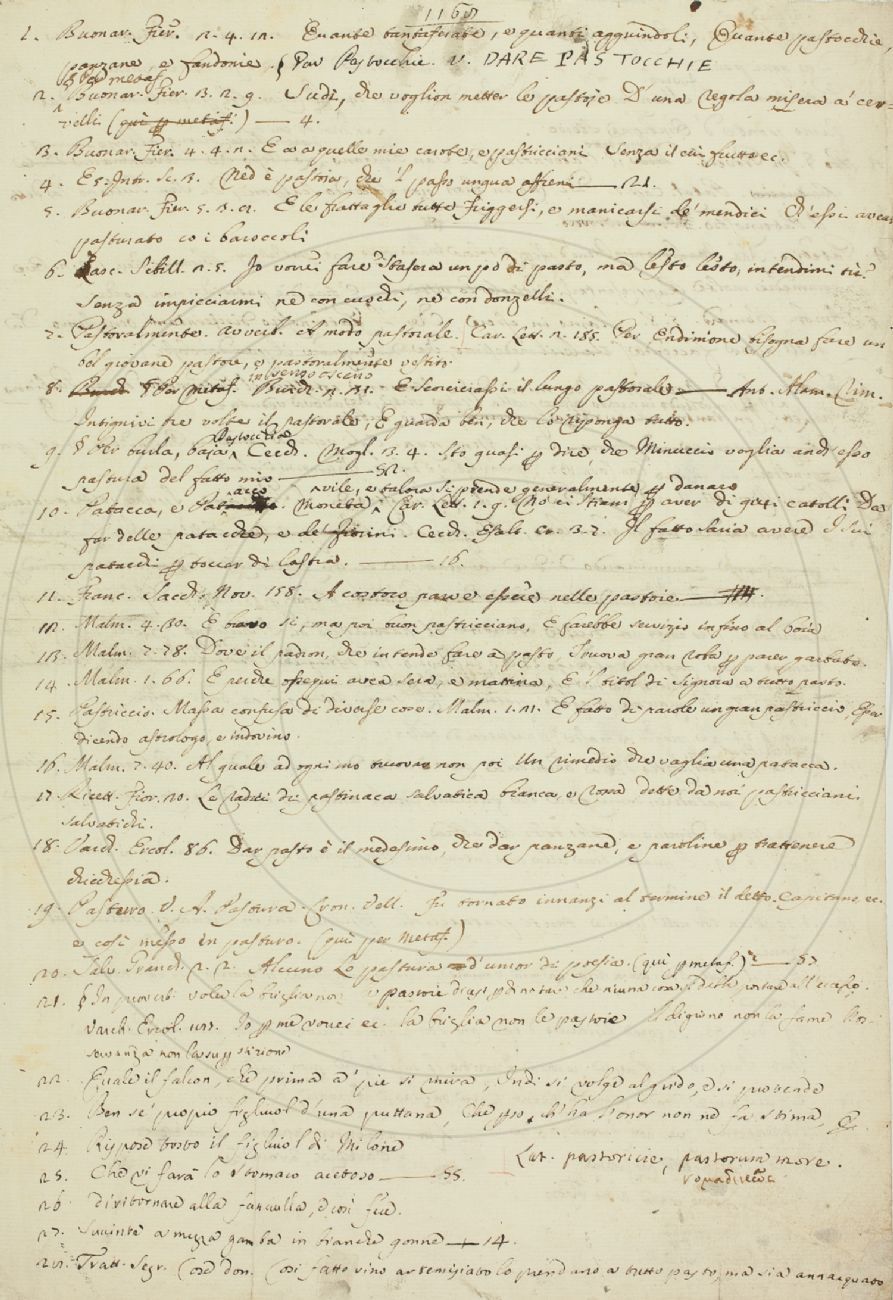 1167
1. Buonar. Fier. 2. 4. 12. Quante tantaferate, e quanti agguindoli, Quante pastocchie,
panzane, e fandonie. § Par Pastocchie v. DARE PASTOCCHIE
§ Per metaf.
2. Buonar. Fier. 3. 2. 9. Sudi, che voglion metter le pastoje D'una regola misera a' cer-
velli (qui p metaf.) — 4.
3. Buonar. Fier. 4. 4. 2. E a quelle mie carote, e pasticciani Senza il cui frutto ec.
4. E 5. Intr. Sc. 3. Nè d'è pastoia, che 'l passo unqua affreni — 21.
5. Buonar. Fier. 5. 3. 2. E le frattaglie tutte Friggersi, e manicarsi de' mendici Ch'essi avean
pasturato co i baroccoli
6. Lasc. Sibill. 2. 5. Io vorrei fare stasera un pò di pasto, ma lesto lesto, intendimi tu?
Senza impicciarmi nè con cuochi, nè con donzelli.
7. Pastoralmente. avverb. A modo pastorale. Car. Lett. 2. 188. Per Endimione bisogna fare un
bel giovane pastore, e pastoralmente vestito.
in senso osceno
8. § Per metaf. E scorciciassi il lungo pastorale — Ant. Alam. Rim.
Intignivi tre volte il pastorale, E guarda ben, che lo riponga tutto.
pastocchia
9. § Per burla, baja, Cecch. Mogl. 3. 4. Sto quasi p dire, che Minuccio voglia anch'esso
pastura del fatto mio — 52.
vile, e talora si prende generalmente p danaro
10. Patacca, e Patacco. Moneta, Car. Lett. 1. 9.
far delle patacche, e de' fiorini. Cecch. Esalt. Cr. 3. 7. Il fatto saria avere
patacchi p toccar di lastra. — 16.
11. Franc. Sacch. Nov. 158. A costoro parve essere nelle pastoie
12. Malm. 4. 30. È bravo sì, ma poi buon pasticciano, E farebbe servizio infino al boia
13. Malm. 7. 78. Dov'è il padron, che intende fare a pasto, Trova gran roba p parer garbato.
14. Malm. 1. 66. E perchè ossequi avea sera, e mattina, E 'l titol di signora a tutto pasto.
15. Pasticcio. Massa confusa di diverse cose. Malm. 1. 21. E fatto di parole un gran pasticcio,
dicendo astrologo, e indovino.
16. Malm. 7. 40. Al quale ad ogni mo truovar non poi Un rimedio che vaglia una patacca.
17. Ricett. Fior. 20. Le radici di pastinaca salvatica bianca, e rossa dette da noi pasticciani
salvatichi.
18. Varch. Ercol. 86. Dar pasto è il medesimo, che dar panzane, e paroline p trattenere
chicchessia.
19. Pasturo. V. A. Pastura. Cron. Vell. Fu tornato innanzi al termine il detto Capitano, ec.
e così messo in pasturo. (qui per metaf.)
20. Salv. Granch. 2. 2. Alcuno Le pastura d'umor di poesia. (qui p metaf.) — 53
21. § In proverb. voler la briglia non le pastoie
Varch. Ercol. Io p me vorrei ec. la briglia non le pastoie il digiuno non la fame l'os-
servanza non la superstizione
22. Quale il falcon, che prima a' piè si mira, Indi si volge al grido, e si protende
23. Ben se' propio figliuol d'una puttana, Che chi ha l'onor non ne fa stima,
24. Rispose tosto il figliuol di Milone
Lat. pastoricie, pastorum more.
νομαδικῶς
25. Che vi farà lo stomaco acetoso — 55.
26. di ritornare alla fanciulla, e così fue.
27. Succinte a mezza gamba in bianche gonne — 14.
28. Tratt. Segr. Cose don. Così fatto vino artemisiato lo prendano a tutto pasto, ma sia annacquato